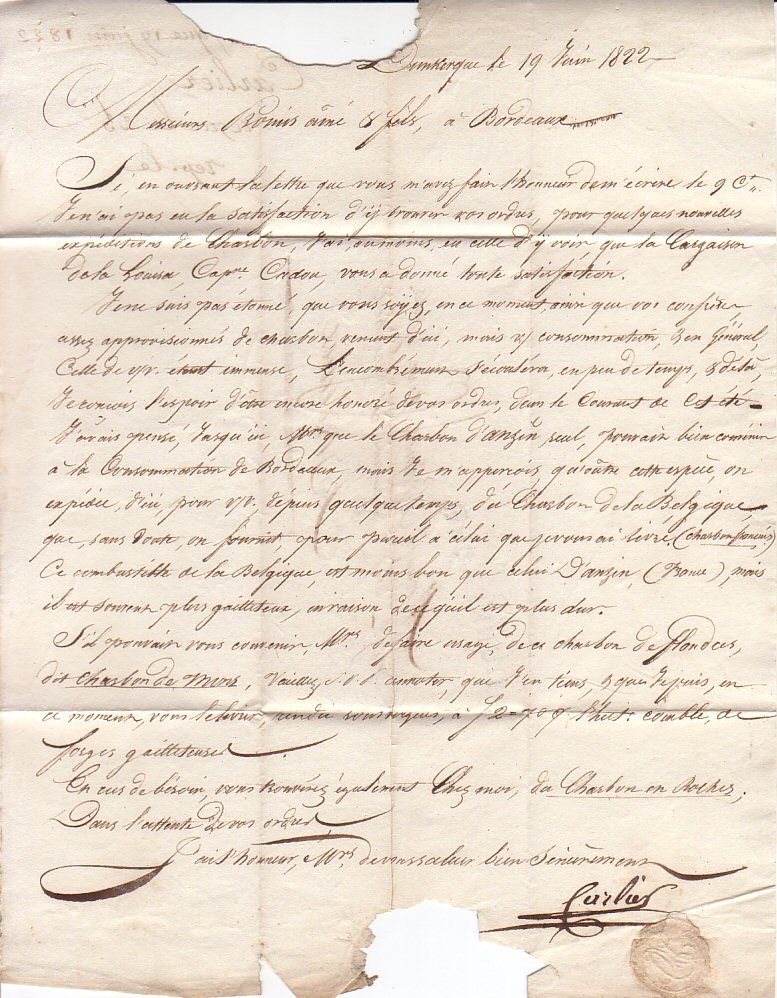 Dunkerque le 19 Juin 1822
Messieurs ainé & fils, à Bordeaux
Si, en ouvrant la lettre que vous m'avez fait l'honneur de m'écrire le 9 Ct.
Je n'ai pas eu la satisfaction d'y trouver vos ordres, pour quelques nouvelles
expéditions de Charbon, J'ai, au moins, eu celle d'y voir que la Cargaison
de la Louisa, Capne. Cadou, vous a donné toute satisfaction.
Je ne suis pas étonné, que vous soyez, en ce moment, ainsi que vos confrères
assez approvisionnés de charbon venant d'ici, mais v/ consommation, & en Général,
Celle de v/v. étant immense, L'encombrement s'écoulera, en peu de temps, & delà,
Je conçois l'espoir d'être encore honoré de vos ordres, dans le Courant de cet été
J'avais pensé, Jusqu'ici, Mrs. que le Charbon d'anzin, seul, pouvait bien convenir
à la Consommation de Bordeaux, mais Je m'apperçois, qu'outre cette espèce, on
expédie, d'ici, pour v/v. dépuis quelque temps, du Charbon de la Belgique,
que, sans doute, on fournit pour pareil à célui que je vous ai livré (charbon francais)
Ce combustible de la Belgique, est moins bon que celui D'anzin, (France), mais
il est souvent plus gailleteux, en raison de ce qu'il est plus dur.
S'il pouvait vous convenir, Mrs. de faire usage, de ce charbon de flandres,
dit Charbon de Mons, Veuillez, S.V.P. noter, que J'en tiens, & que Je puis, en
ce moment, vous le livrer, rendu sous voiles, à f 2=70 c l'hect. comble, de
forges gailleteuses
En cas de bésoin, vous trouvérez également Chez moi, du Charbon en Roches,
Dans l'attente de vos ordres,
J'ai l'honneur, Mrs. de vous saluer bien Sincèrement
Carlier
19 juin 1822
Carlier